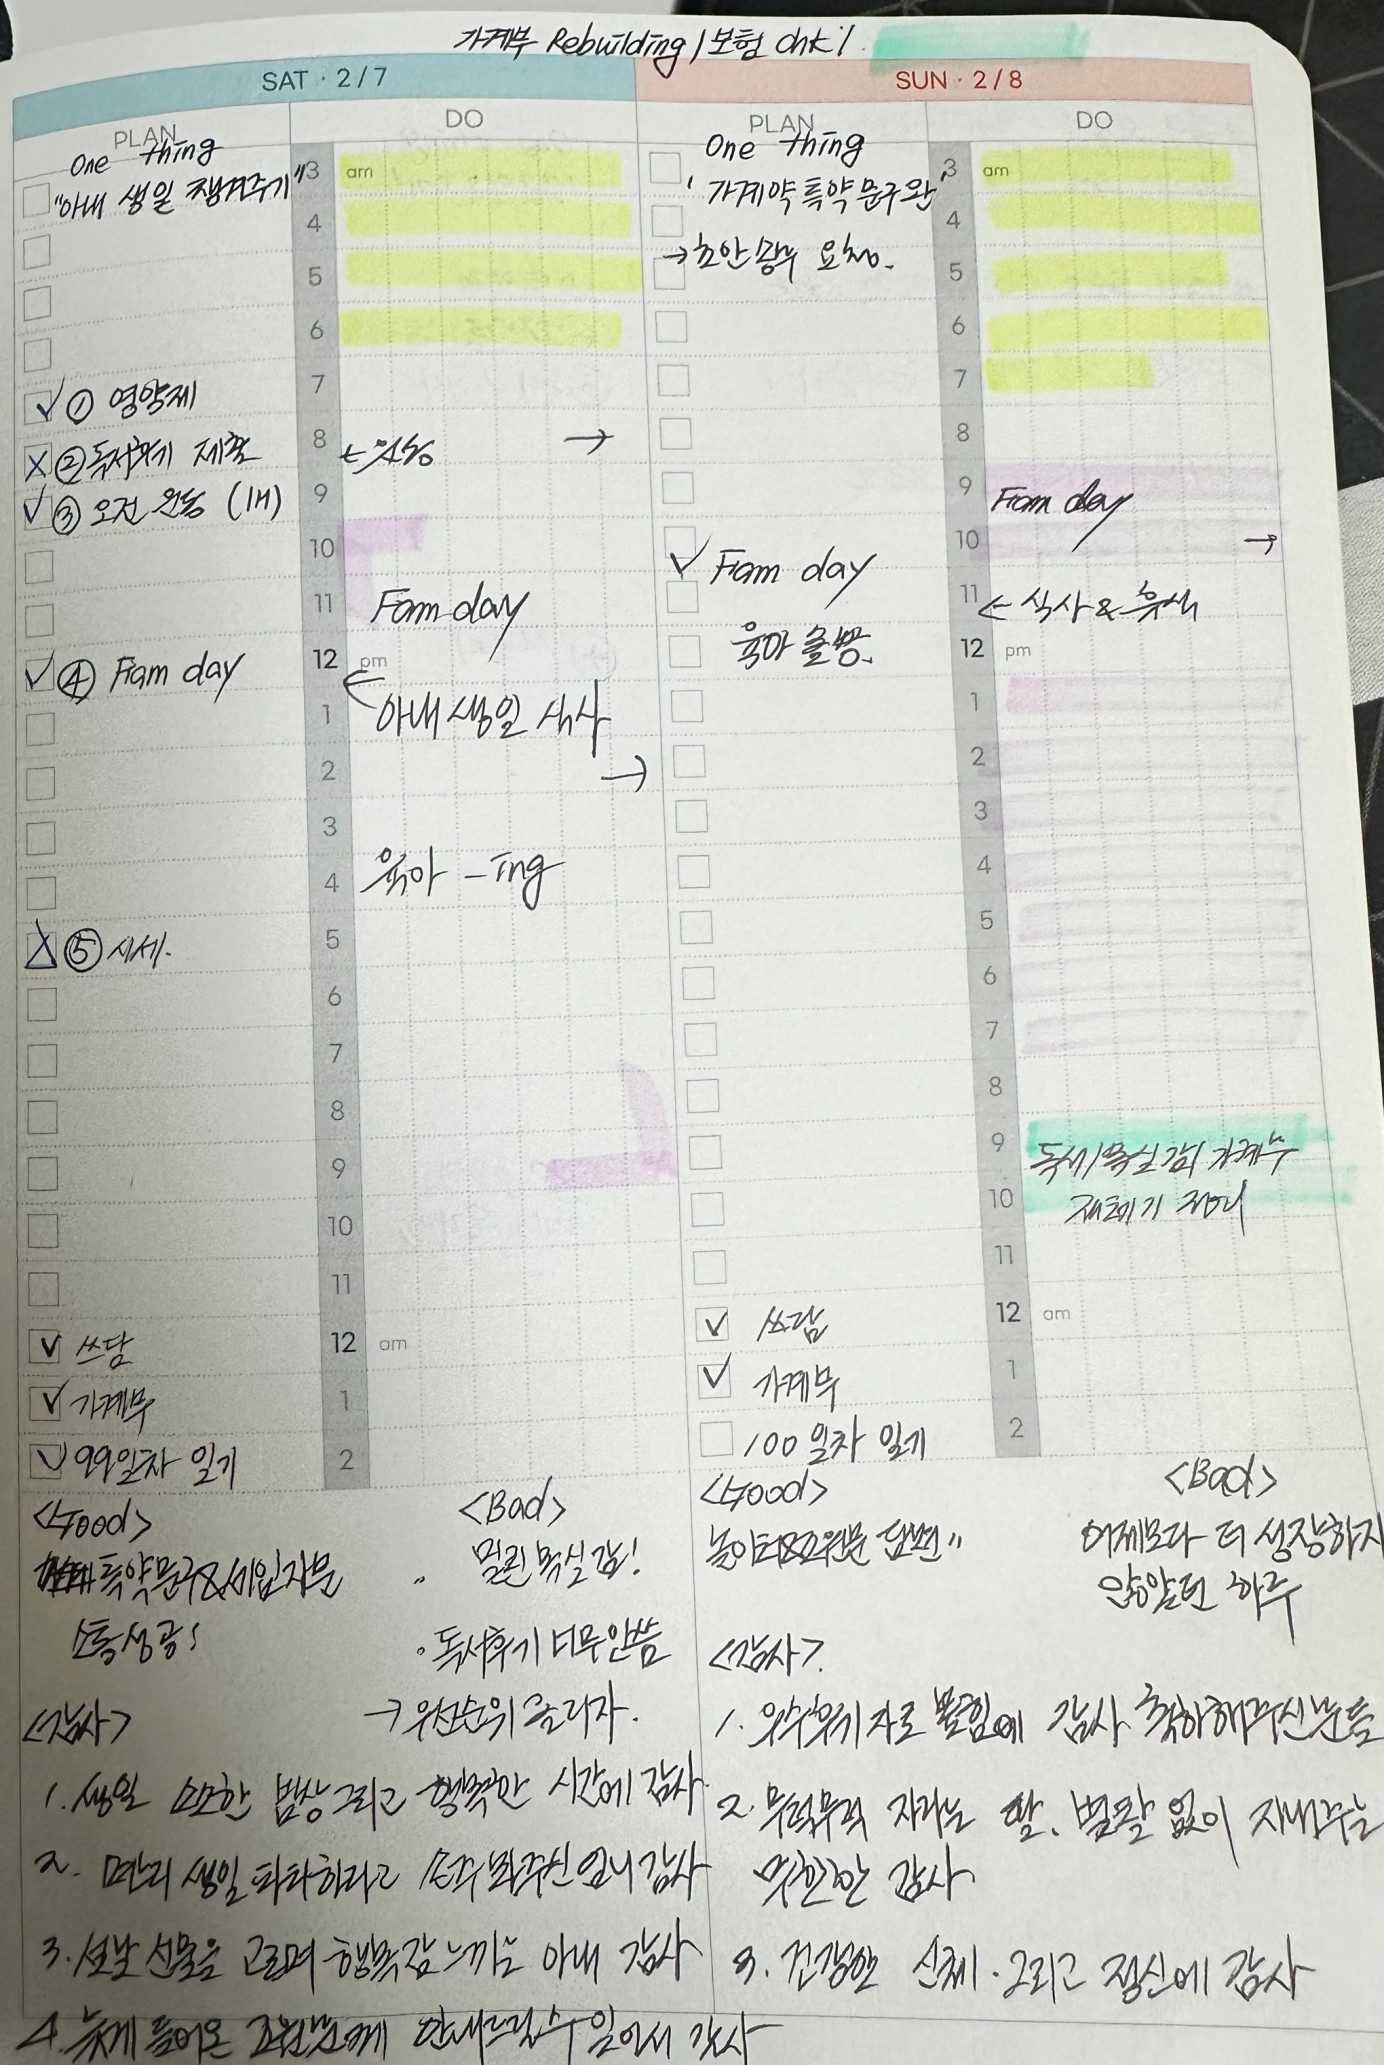 가계부 Rebuilding / 보험 chk!
SAT · 2/7
PLAN
DO
One thing
"아내 생일 챙겨주기"
① 영양제
② 독서후기 제출
③ 오전 운동 (1H)
④ Fam day
⑤ 시세.
쓰담
가계부
99일차 일기
3 am
4
5
6
7
8
9
10
11 Fam day
12 pm
1 아내 생일 식사
2 →
3
4 육아 -ing
5
6
7
8
9
10
11
12 am
1
2
<Good>
특약문구&세입자분
소통성공!
<Bad>
멀린 목실감!
· 독서후기 너무 안씀
→ 우선순위 올리자.
<감사>
1. 생일 소소한 밥상 그리고 행복한 시간에 감사.
2. 멀리 생일 파티하라고 감사
3. 설날 선물을 고르며 행복감 느끼는 아내 감사
4. 늦게 들어온 조원분께 안내드릴수 있어서 감사
SUN · 2/8
PLAN
DO
One thing
'가계약 특약 문구 완'
→ 초안 요청.
Fam day
육아 출빵.
쓰담
가계부
100일차 일기
3 am
4
5
6
7
8
9 Fam day
10 →
11 ← 식사 & 휴식
12 pm
1
2
3
4
5
6
7
8
9 독서/목실감/가계부
10 정리
11
12 am
1
2
<Good>
놀이터&조원분 답변"
<Bad>
어제보다 더 성장하지
않았던 하루
<감사>.
1. 우수후기 자로 뽑힘에 감사. 축하해주신분들
2. 무럭무럭 자라는 딸, 별탈 없이 지내주는
무한한 감사
3. 건강한 신체. 그리고 정신에 감사